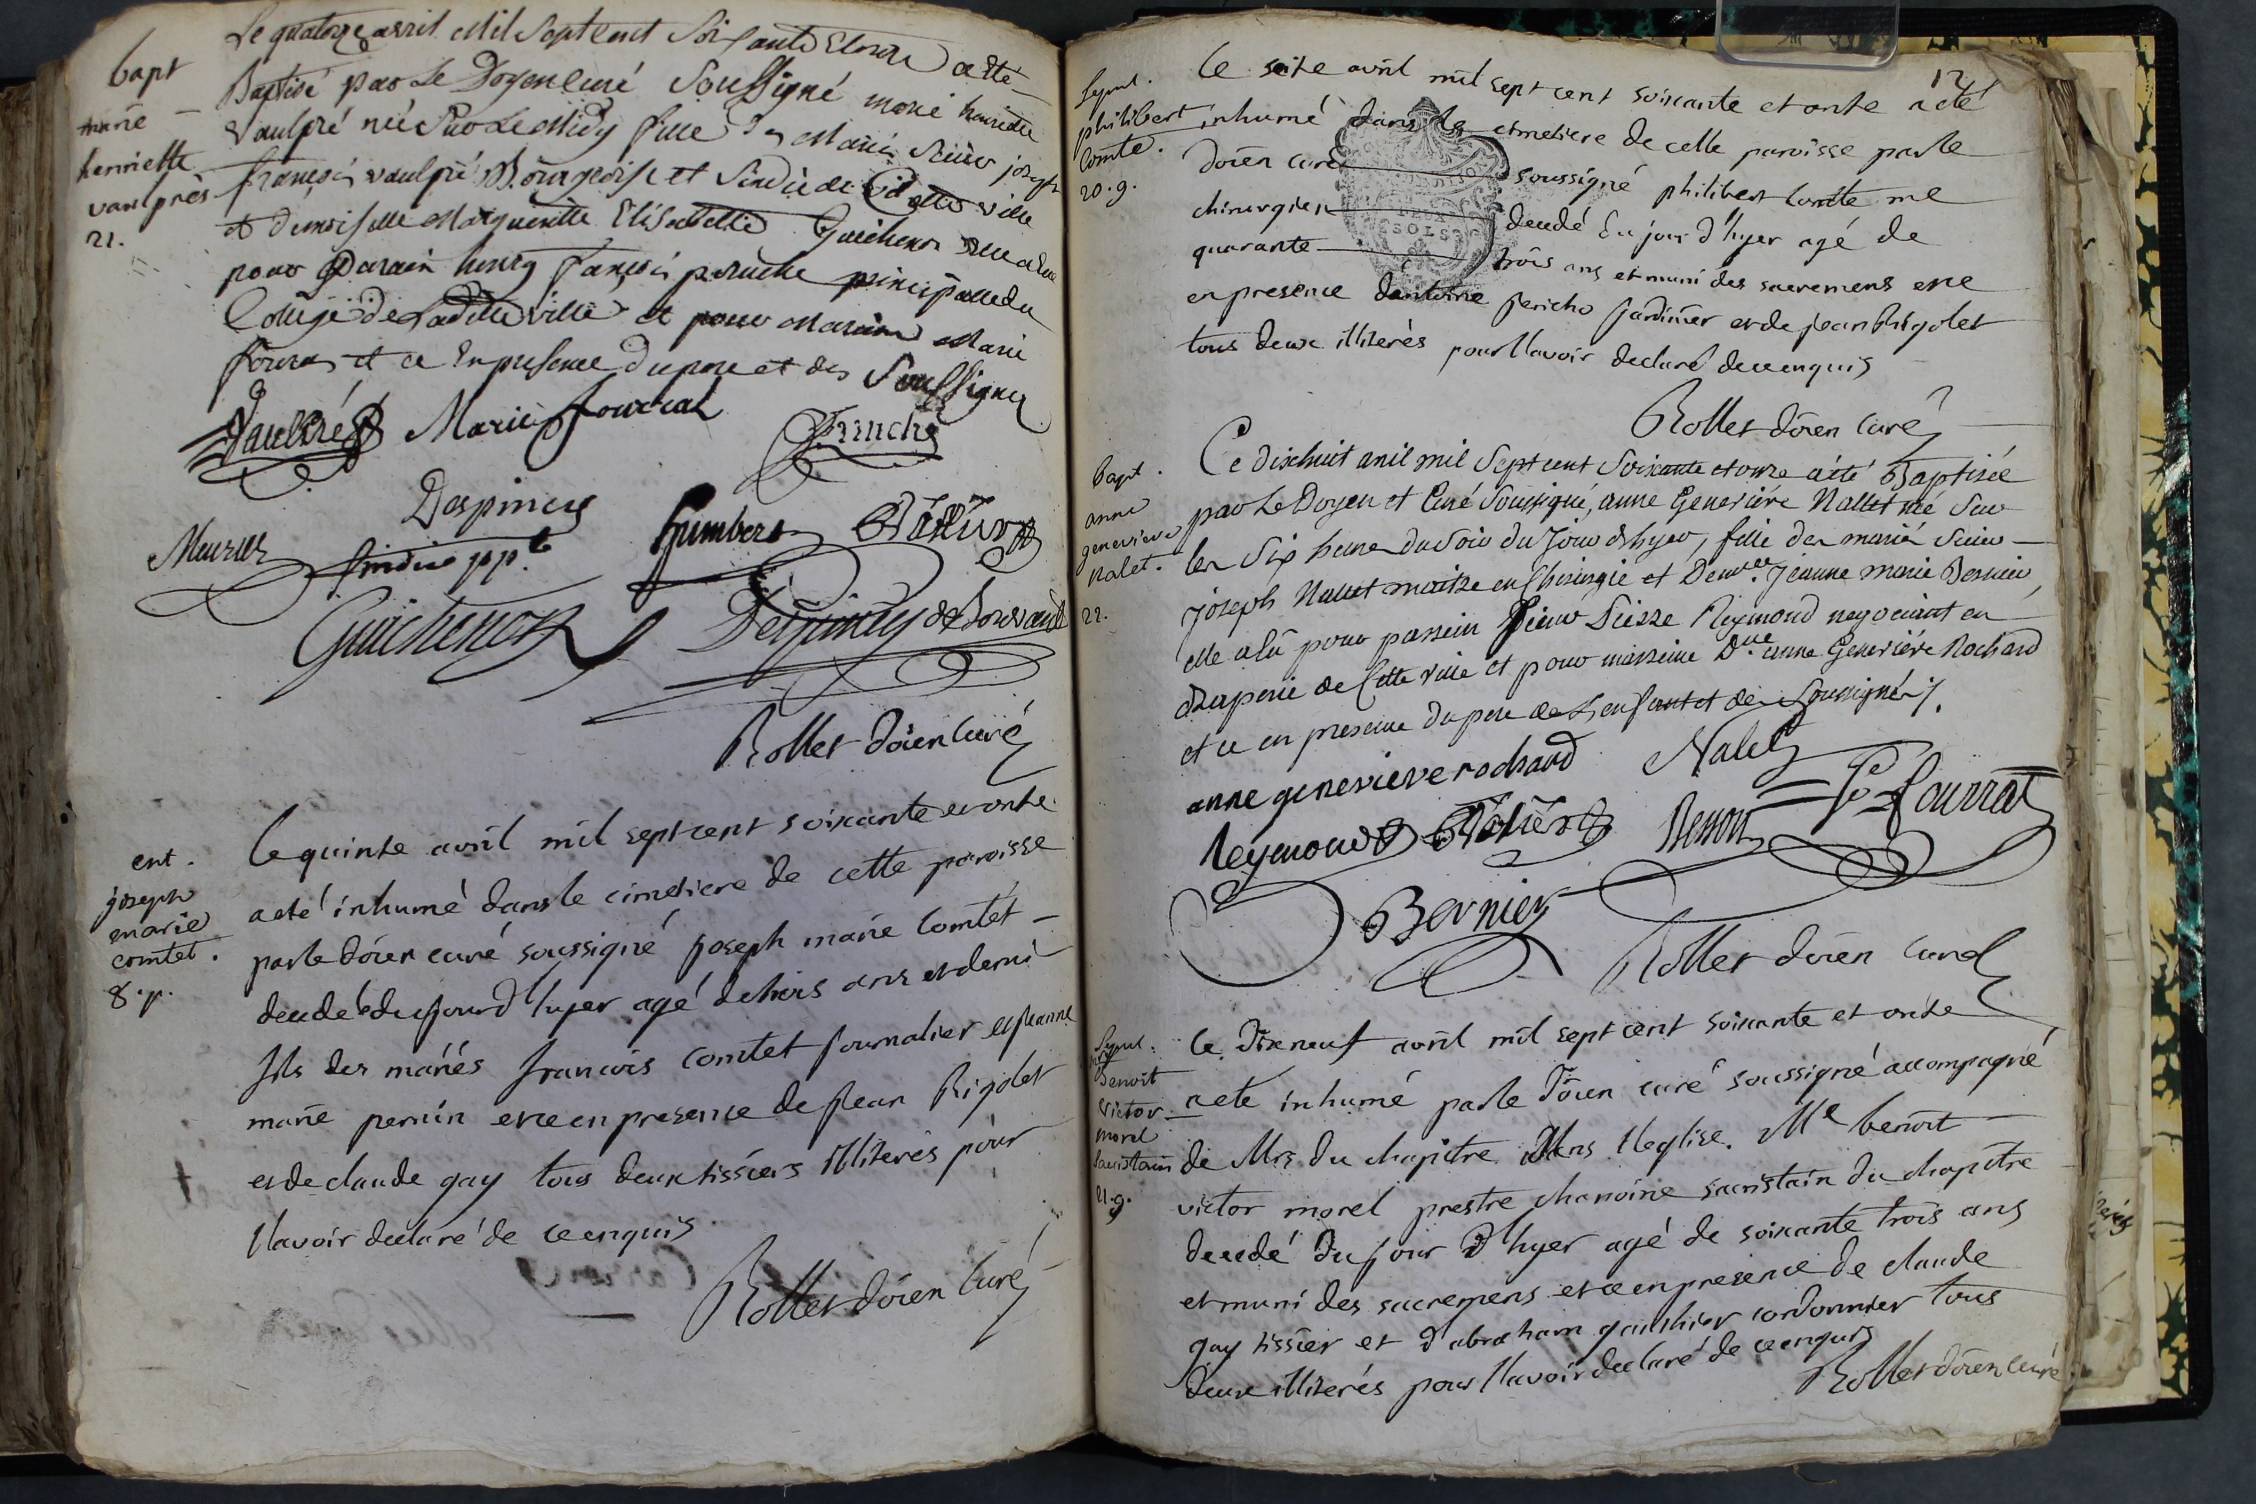 bapt
marie
henriette
vaulpré
21.
Le quatorze avril Mil Sept Cent Soixante Et onze a Eté
Baptisé par Le Doyen Curé Soussigné marie henriette
vaulpré née sur Le Midy fille des Mariés Sieur joseph
françois vaulpré Bourgeois et Sindic de Cette ville
et demoiselle Marguerite Elisabeth Guichenon elle a Eu
pour Parain henry françois peruche principalle du
College de Ladite ville et pour Maraine Marie
fourra et ce En presence du pere et des Soussignés
Vaulpré Marie fourrat Peruche
Despiney
Meurier sindic Humbert
Guichenon
Rollet doïen Curé
ent.
joseph
marie
comtet.
8.p.
le quinze avril mil sept cent soixante et onze
a eté inhumé dans le cimetiere de cette paroisse
par le doïen curé soussigné joseph marie Comtet
decedé du jour d'hyer agé de trois ans et demi
fils des mariés francois comtet journalier et jeanne
marie perrin et ce en presence de jean Rigolet
et de claude gay tous deux tissiers illiterés pour
l'avoir declaré de ce enquis
Rollet doïen Curé
12
Sepul.
philibert
Comte.
20.g.
le seize avril mil sept cent soixante et onze a eté
inhumé dans le cimetiere de cette paroisse par le
doïen curé soussigné philibert Comte me
chirurgien decedé du jour d'hyer agé de
quarante trois ans et muni des sacremens et ce
en presence d'antoine jericho jardinier et de jean Rigolet
tous deux illiterés pour l'avoir declaré de ce enquis
Rollet doïen Curé
bapt.
anne
genevieve
nalet.
22.
Ce dixhuit avril mil Sept cent Soixante et onze a été Baptisée
par Le Doyen et Curé Soussigné, anne Geneviéve Nallet née Sur
les Six heures du Soir du Jour d'hyer, fille des mariés Sieur
Joseph Nallet maitre en Chirurgie et Demlle. Jeanne marie Bernier,
elle a Eu pour parrein Sieur Reymond negociant en
Draperie de Cette ville et pour marreine Dlle. anne Geneviéve Rochard
et ce en presence du pere de L'enfant et des Soussignés /.
anne genevieve rochard Nalet
Reymond fourrat
Bernier
Rollet doïen Curé
Sepul.
Benoit
victor
morel
sacristain
21.g.
le dix neuf avril mil sept cent soixante et onze
a eté inhumé par le doïen curé soussigné accompagné
de Mrs du chapitre dans l'eglise. Me benoit
victor morel prestre chanoine sacristain du chapitre
decedé du jour d'hyer agé de soixante trois ans
et muni des sacremens et ce en presence de claude
gay tissier et d'abraham gauthier cordonnier tous
deux illiterés pour l'avoir declaré de ce enquis
Rollet doïen Curé